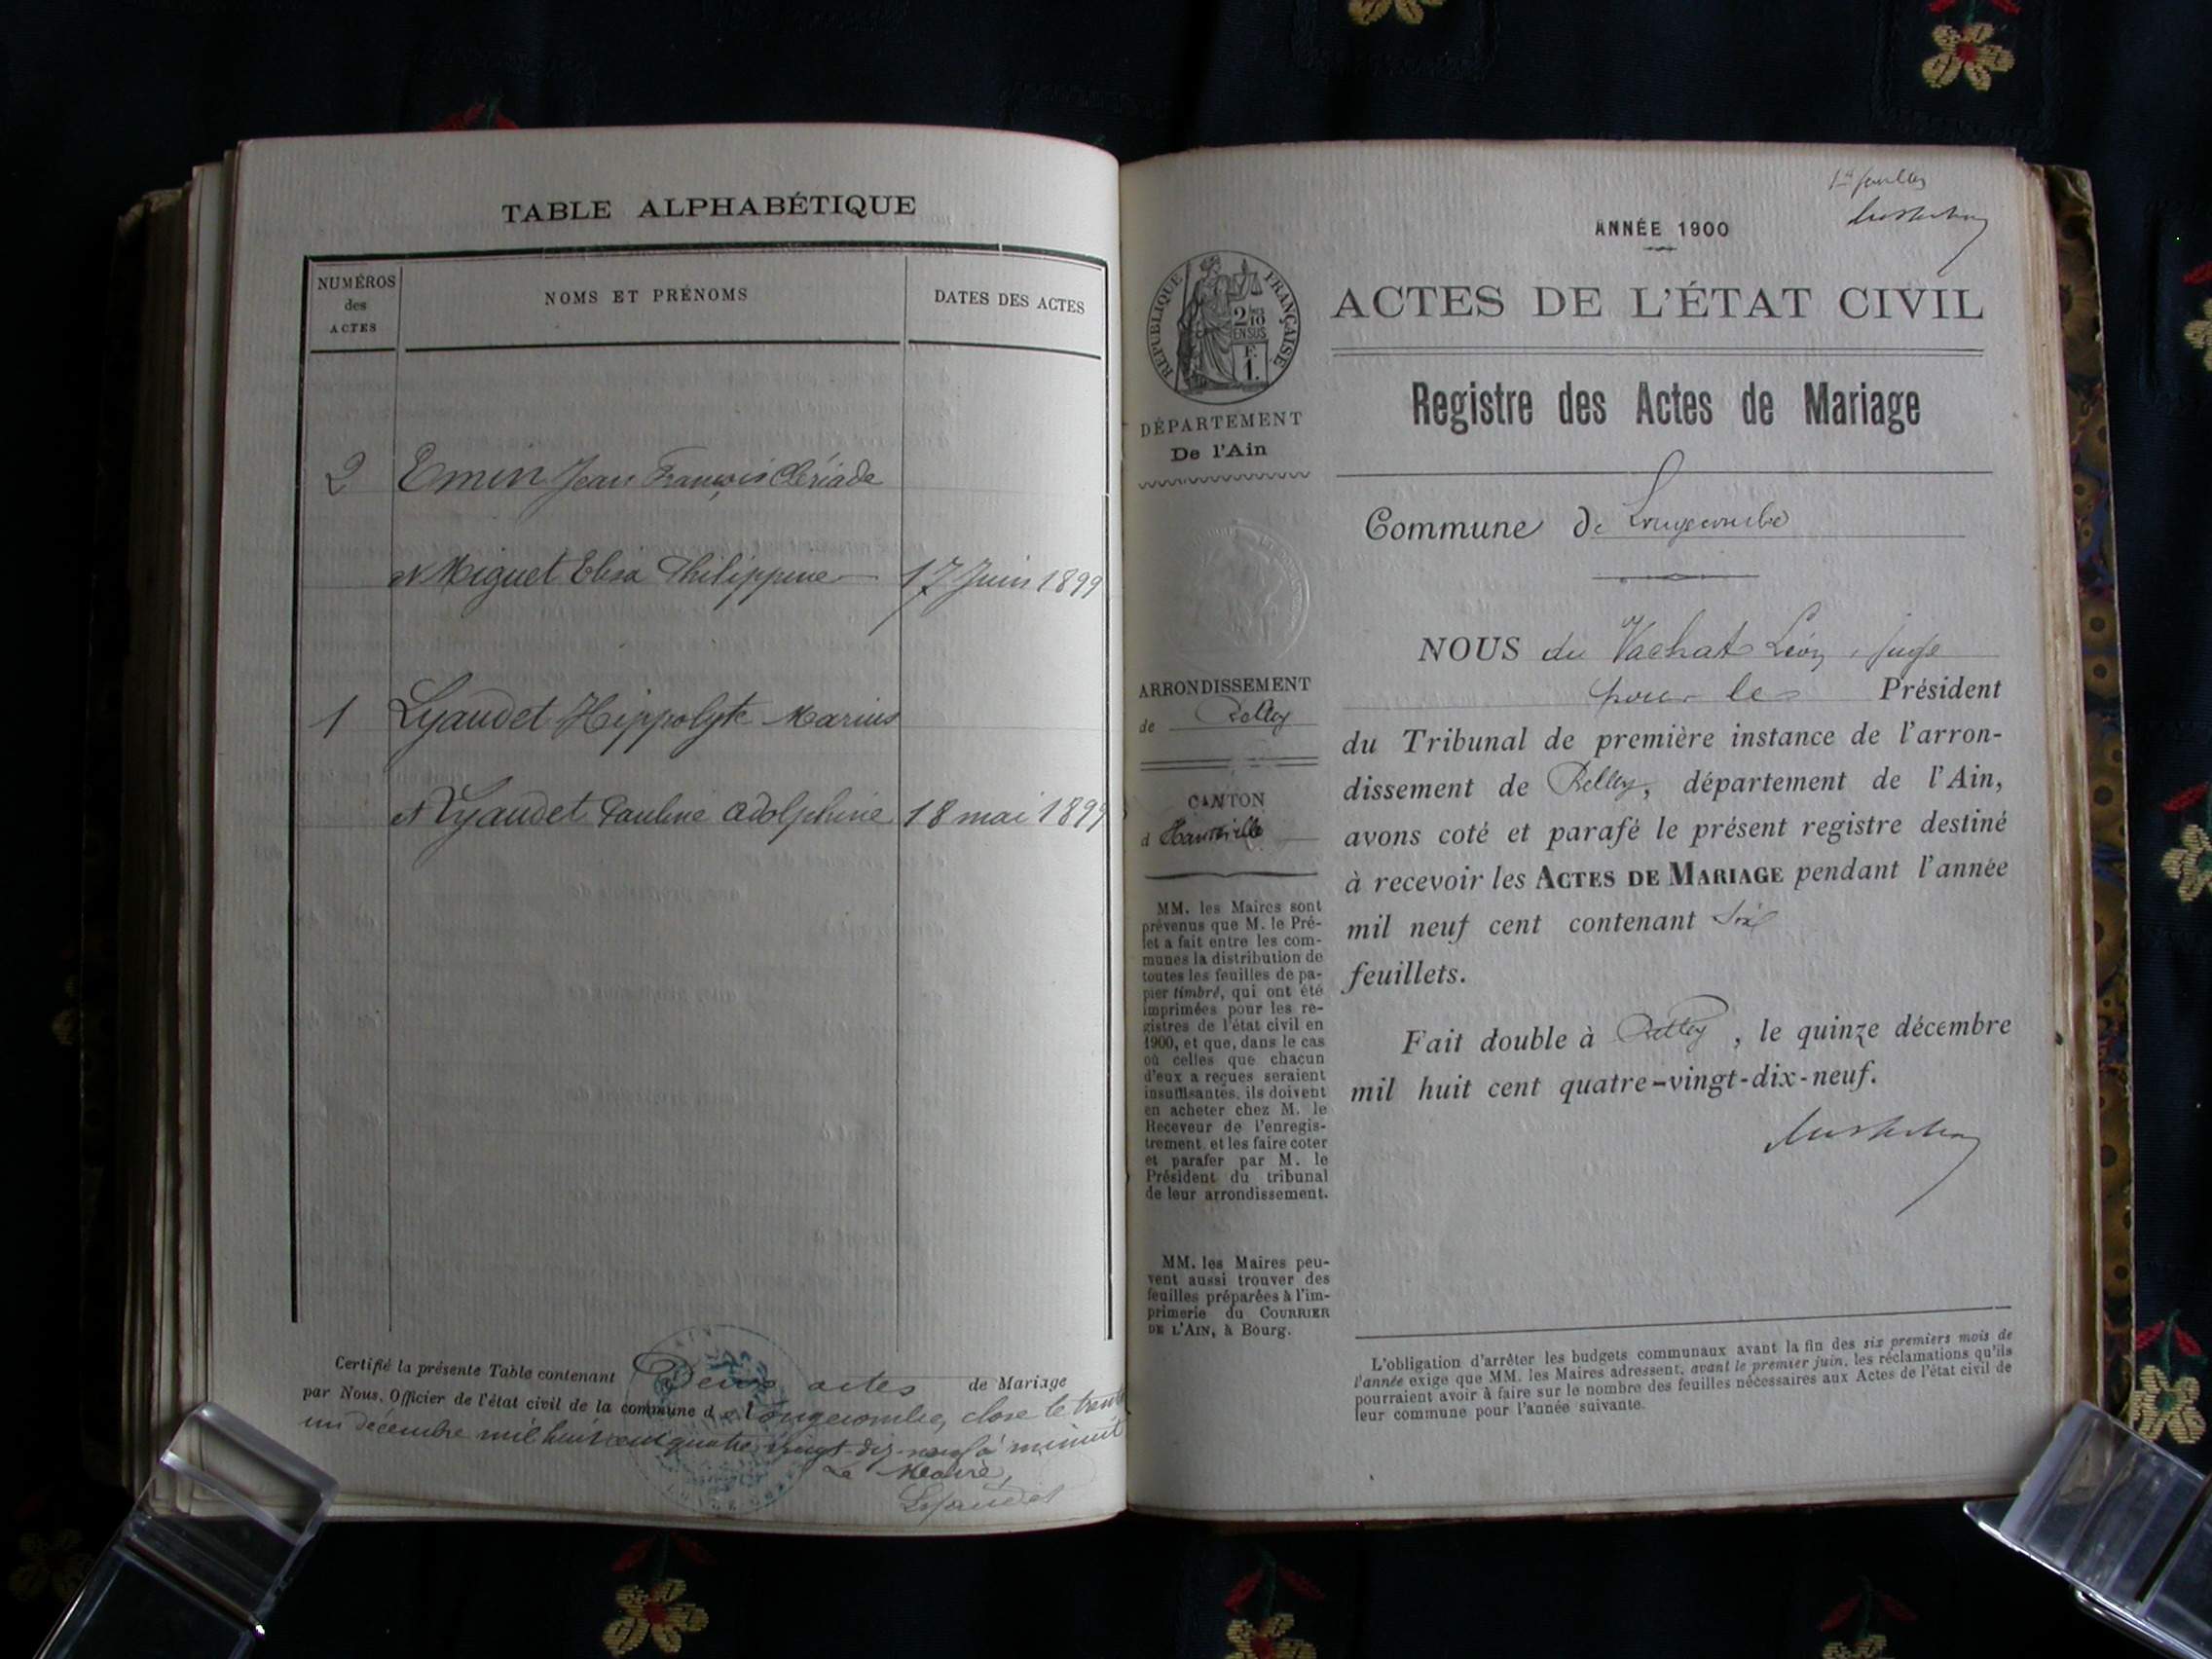 TABLE ALPHABÉTIQUE
NUMÉROS
des
ACTES
NOMS ET PRÉNOMS
DATES DES ACTES
2 Emin Jean François Clériade
et Miguet Elisa Philippine 17 Juin 1899
1 Lyaudet Hippolyte Marius
et Lyaudet Pauline Adolphine 18 mai 1899
Certifié la présente Table contenant Deux actes de Mariage
par Nous, Officier de l'état civil de la commune de Longecombe, close le trente
un décembre mil huit cent quatre vingt-dix-neuf à minuit
Le Maire,
Lyaudet
ANNÉE 1900
RÉPUBLIQUE FRANÇAISE
2/10
EN SUS
F.
1.
ACTES DE L'ÉTAT CIVIL
Registre des Actes de Mariage
DÉPARTEMENT
De l'Ain
Commune de Longecombe
ARRONDISSEMENT
de Belley
CANTON
d Hauteville
NOUS du Vachat Léon, juge
pour le Président
du Tribunal de première instance de l'arron-
dissement de Belley, département de l'Ain,
avons coté et parafé le présent registre destiné
à recevoir les ACTES DE MARIAGE pendant l'année
mil neuf cent contenant six
feuillets.
Fait double à Belley, le quinze décembre
mil huit cent quatre-vingt-dix-neuf.
MM. les Maires sont
prévenus que M. le Pré-
fet a fait entre les com-
munes la distribution de
toutes les feuilles de pa-
pier timbré, qui ont été
imprimées pour les re-
gistres de l'état civil en
1900, et que, dans le cas
où celles que chacun
d'eux a reçues seraient
insuffisantes, ils doivent
en acheter chez M. le
Receveur de l'enregis-
trement, et les faire coter
et parafer par M. le
Président du tribunal
de leur arrondissement.
MM. les Maires peu-
vent aussi trouver des
feuilles préparées à l'im-
primerie du COURRIER
DE L'AIN, à Bourg.
L'obligation d'arrêter les budgets communaux avant la fin des six premiers mois de
l'année exige que MM. les Maires adressent, avant le premier juin, les réclamations qu'ils
pourraient avoir à faire sur le nombre des feuilles nécessaires aux Actes de l'état civil de
leur commune pour l'année suivante.